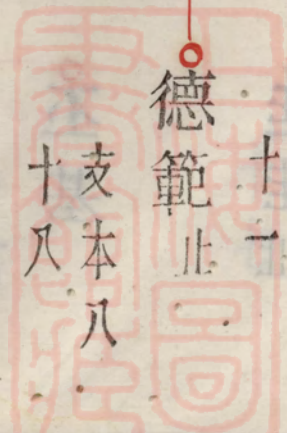 十一
德範止
支本八
十八